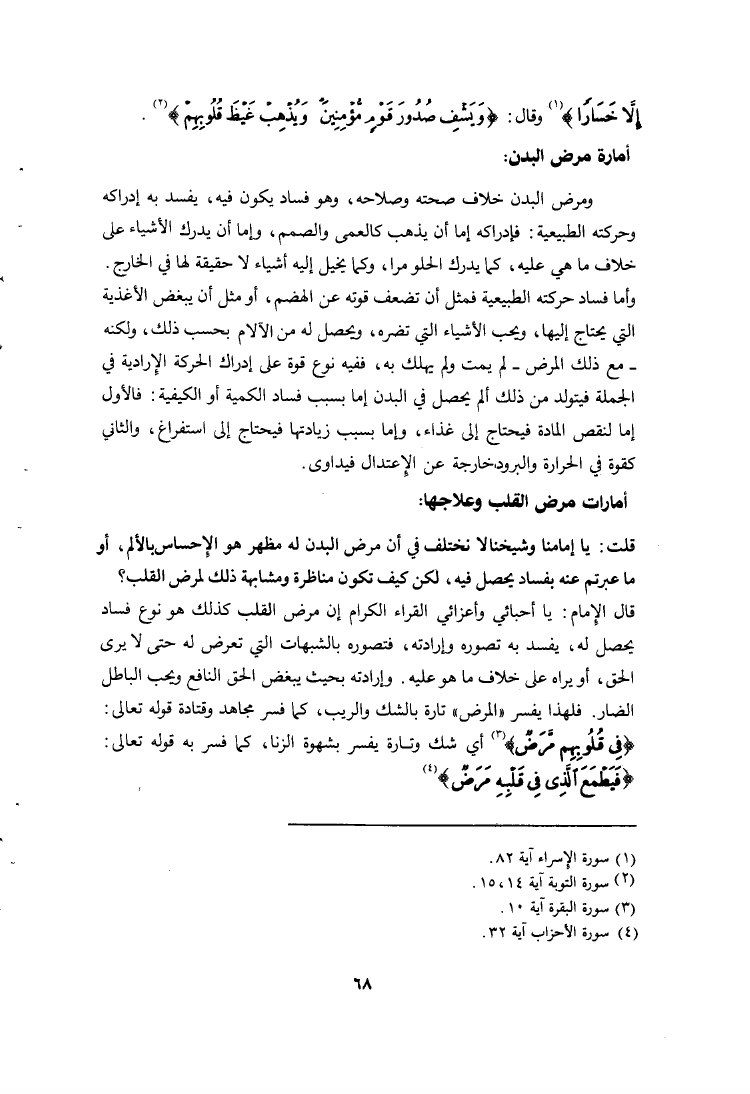 إِلَّا خَسَارًا ﴾(١) وقال : ﴿ وَيَشْفِ صُدُورَ قَوْمٍ مُّؤْمِنِينَ وَيُذْهِبْ غَيْظَ قُلُوبِهِمْ ﴾(٢) .
أمارة مرض البدن:
ومرض البدن خلاف صحته وصلاحه ، وهو فساد يكون فيه ، يفسد به إدراكه
وحركته الطبيعية : فإدراكه إما أن يذهب كالعمى والصمم ، وإما أن يدرك الأشياء على
خلاف ما هي عليه ، كما يدرك الحلو مرا ، وكما يخيل إليه أشياء لا حقيقة لها في الخارج .
وأما فساد حركته الطبيعية فمثل أن تضعف قوته عن الهضم ، أو مثل أن يبغض الأغذية
التي يحتاج إليها ، ويحب الأشياء التي تضره ، ويحصل له من الآلام بحسب ذلك ، ولكنه
- مع ذلك المرض - لم يمت ولم يهلك به ، ففيه نوع قوة على إدراك الحركة الإرادية في
الجملة فيتولد من ذلك ألم يحصل في البدن إما بسبب فساد الكمية أو الكيفية : فالأول
إما لنقص المادة فيحتاج إلى غذاء ، وإما بسبب زيادتها فيحتاج إلى استفراغ ، والثاني
كقوة في الحرارة والبرود،خارجة عن الإعتدال فيداوى .
أمارات مرض القلب وعلاجها:
قلت : يا إمامنا وشيخنالا نختلف في أن مرض البدن له مظهر هو الإحساس بالألم ، أو
ما عبرتم عنه بفساد يحصل فيه ، لكن كيف تكون مناظرة ومشابهة ذلك لمرض القلب؟
قال الإمام : يا أحبائي وأعزائي القراء الكرام إن مرض القلب كذلك هو نوع فساد
يحصل له ، يفسد به تصوره وإرادته ، فتصوره بالشبهات التي تعرض له حتى لا يرى
الحق ، أو يراه على خلاف ما هو عليه . وإرادته بحيث يبغض الحق النافع ويحب الباطل
الضار. فلهذا يفسر «المرض» تارة بالشك والريب ، كما فسر مجاهد وقتادة قوله تعالى :
﴿فِى قُلُوبِهِم مَّرَضٌ﴾(٣) أي شك وتارة يفسر بشهوة الزنا ، كما فسر به قوله تعالى :
﴿فَيَطْمَعَ ٱلَّذِى فِى قَلْبِهِۦ مَرَضٌ﴾(٤)
(١) سورة الإسراء آية ٨٢.
(٢) سورة التوبة آية ١٤ ، ١٥ .
(٣) سورة البقرة آية ١٠ .
(٤) سورة الأحزاب آية ٣٢.
٦٨